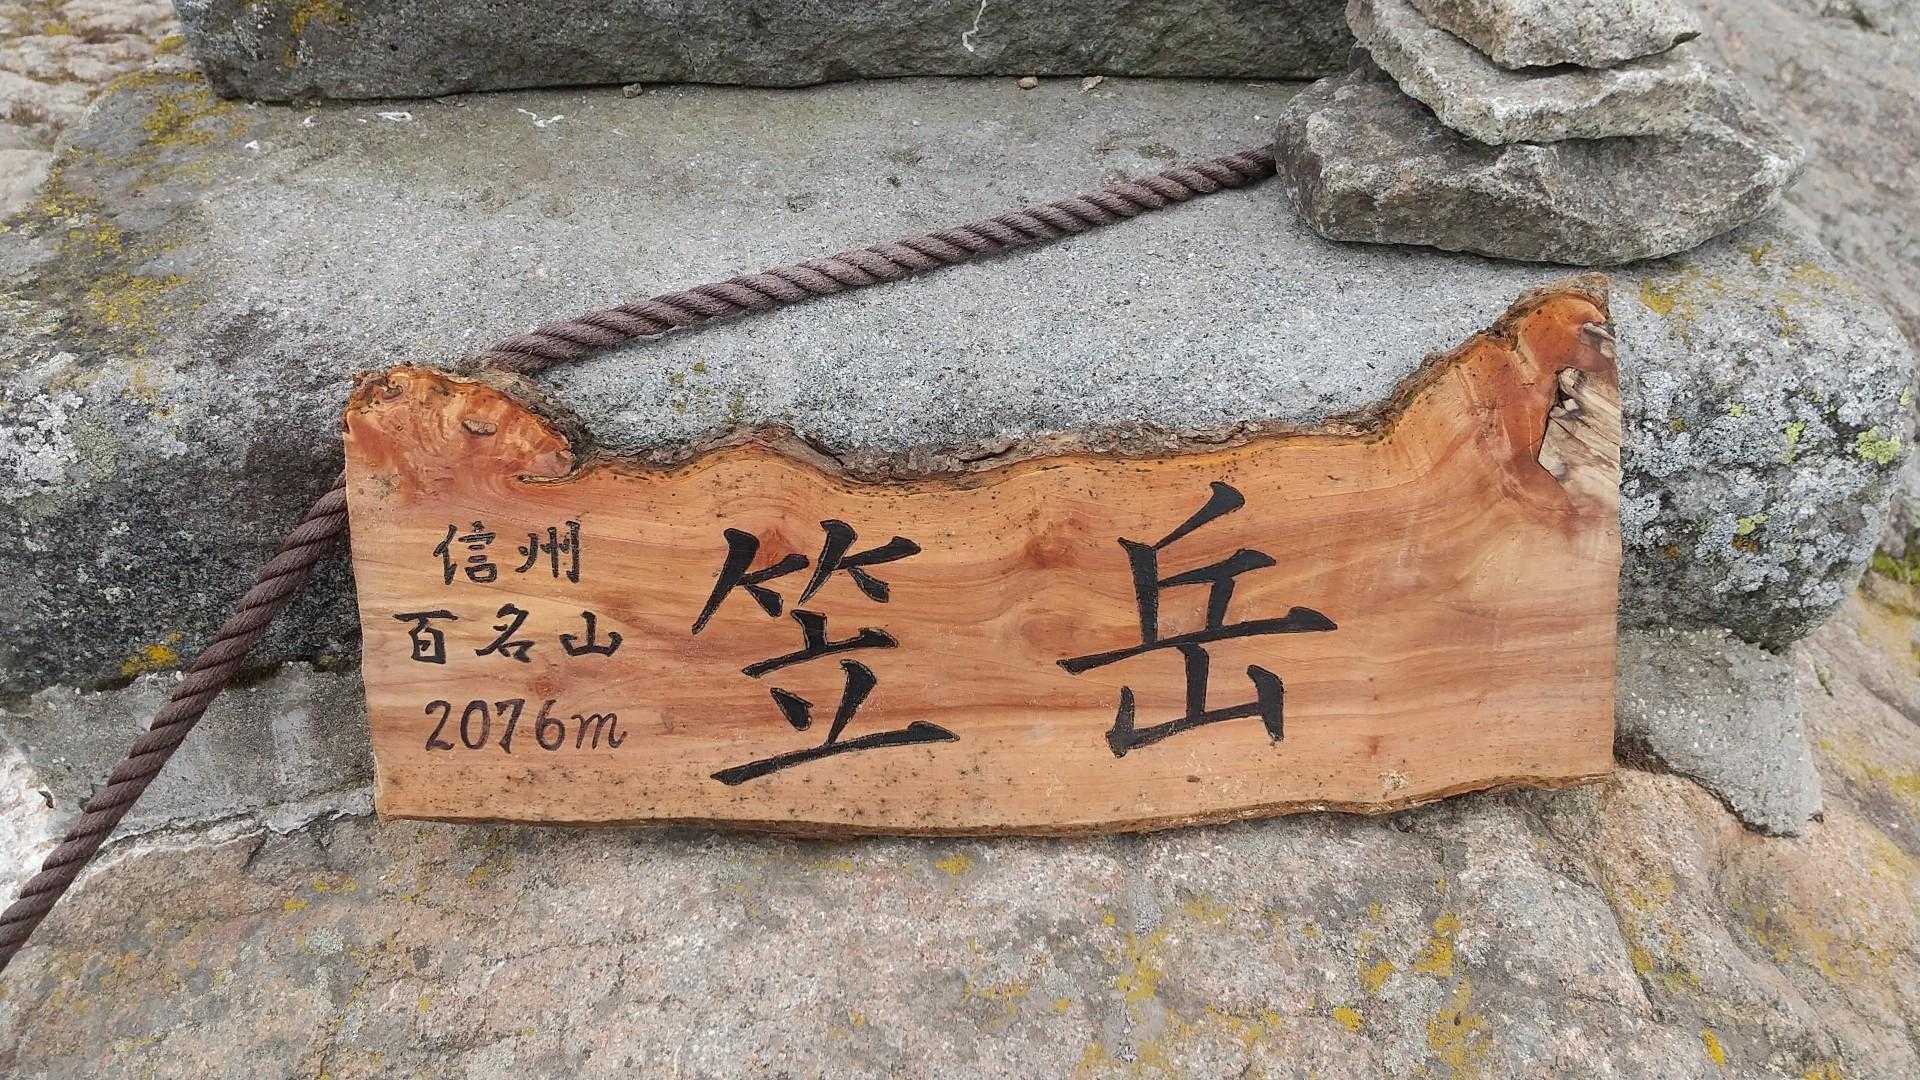 信州
百名山
2076m
笠岳